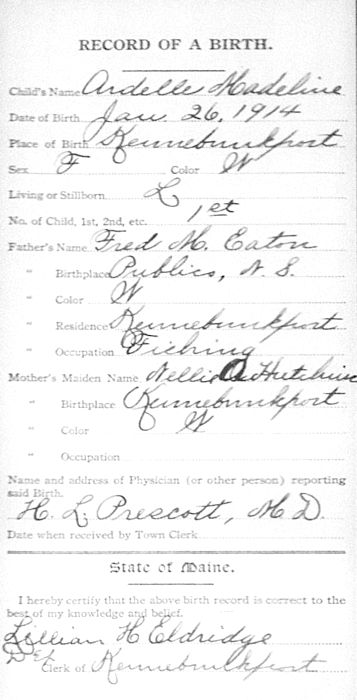 RECORD OF A BIRTH.
Child's Name Ardelle Madeline
Date of Birth Jan 26, 1914
Place of Birth Kennebunkport
Sex F Color W
Living or Stillborn L
No. of Child, 1st, 2nd, etc. 1st
Father's Name Fred M. Eaton
" Birthplace Publico, N. S.
" Color W
" Residence Kennebunkport
" Occupation Fishing
Mother's Maiden Name Nellie A Hutchins
" Birthplace Kennebunkport
" Color W
" Occupation
Name and address of Physician (or other person) reporting
said Birth.
H. L. Prescott, M D.
Date when received by Town Clerk
State of Maine.
I hereby certify that the above birth record is correct to the
best of my knowledge and belief.
Lillian H Eldridge
Dept Clerk of Kennebunkport